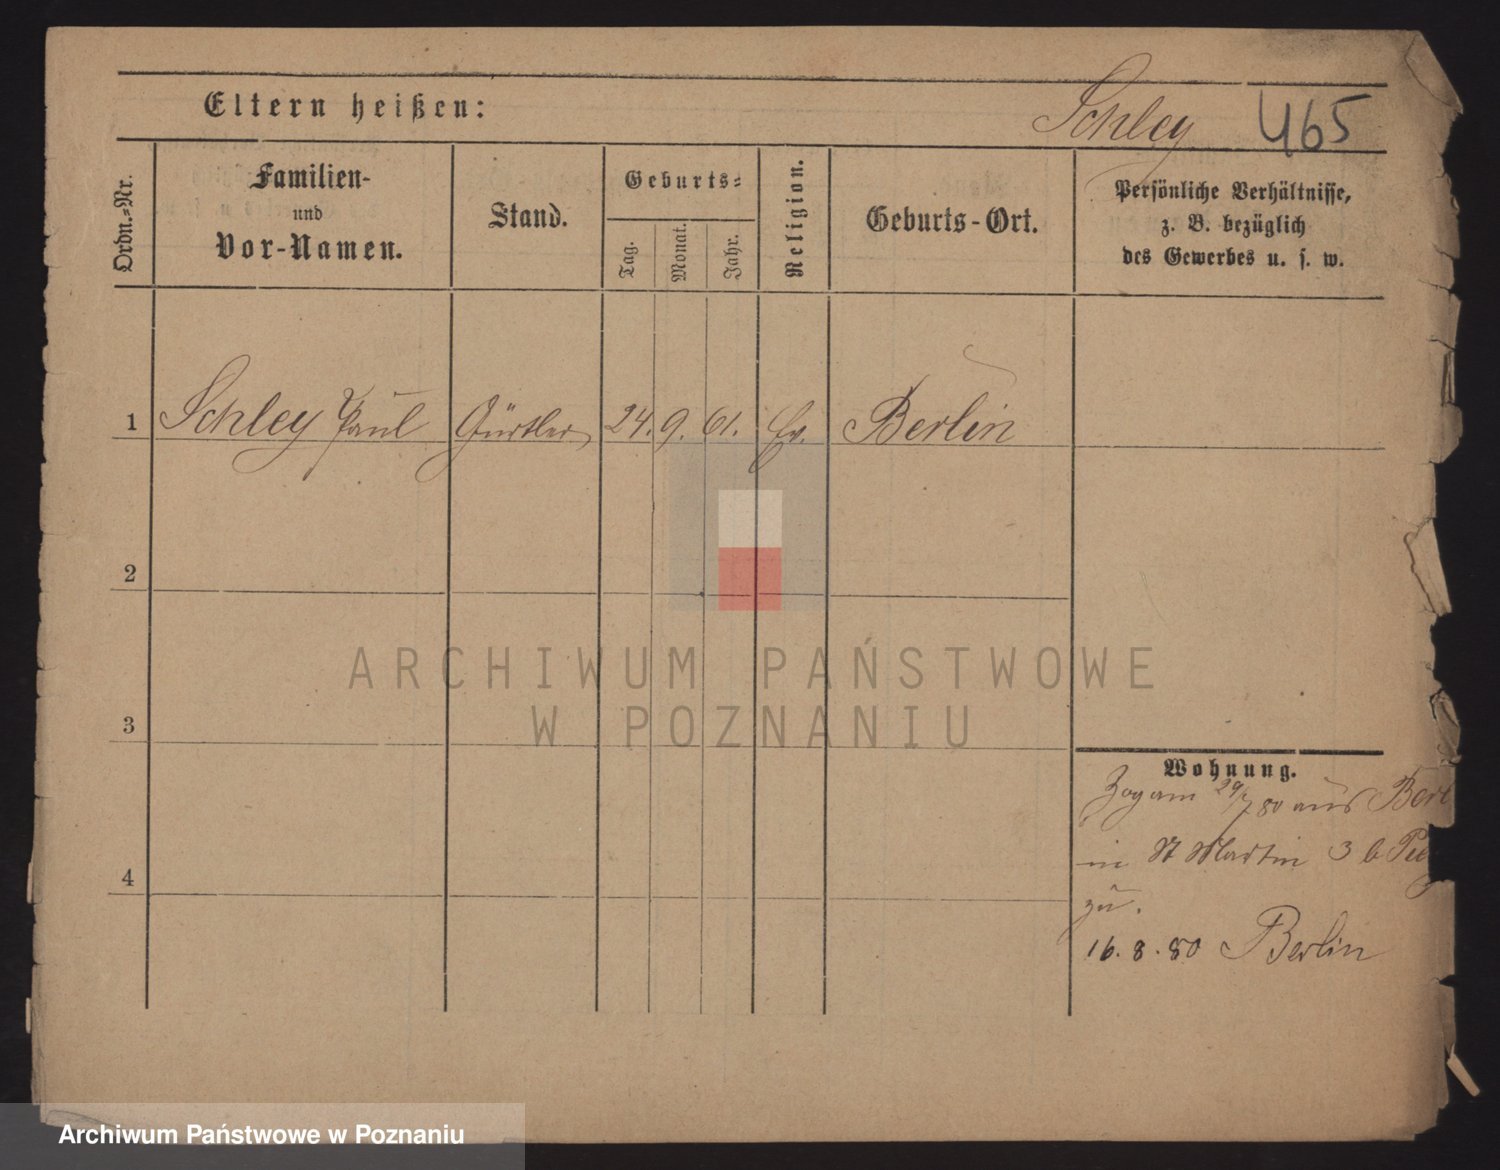 Eltern heißen:
Schley 465
Ordn.=Nr.
Familien-
und
Vor-Namen.
Stand.
Geburts=
Tag.
Monat.
Jahr.
Religion.
Geburts-Ort.
Persönliche Verhältnisse,
z. B. bezüglich
des Gewerbes u. s. w.
1 Schley Paul Gürtler 24. 9. 61. Ev. Berlin
2
3
4
Wohnung.
Zog am 29/7 80 aus Berl
in St Martin 3 b
zu.
16. 8. 80 Berlin
ARCHIWUM PAŃSTWOWE
W POZNANIU
Archiwum Państwowe w Poznaniu